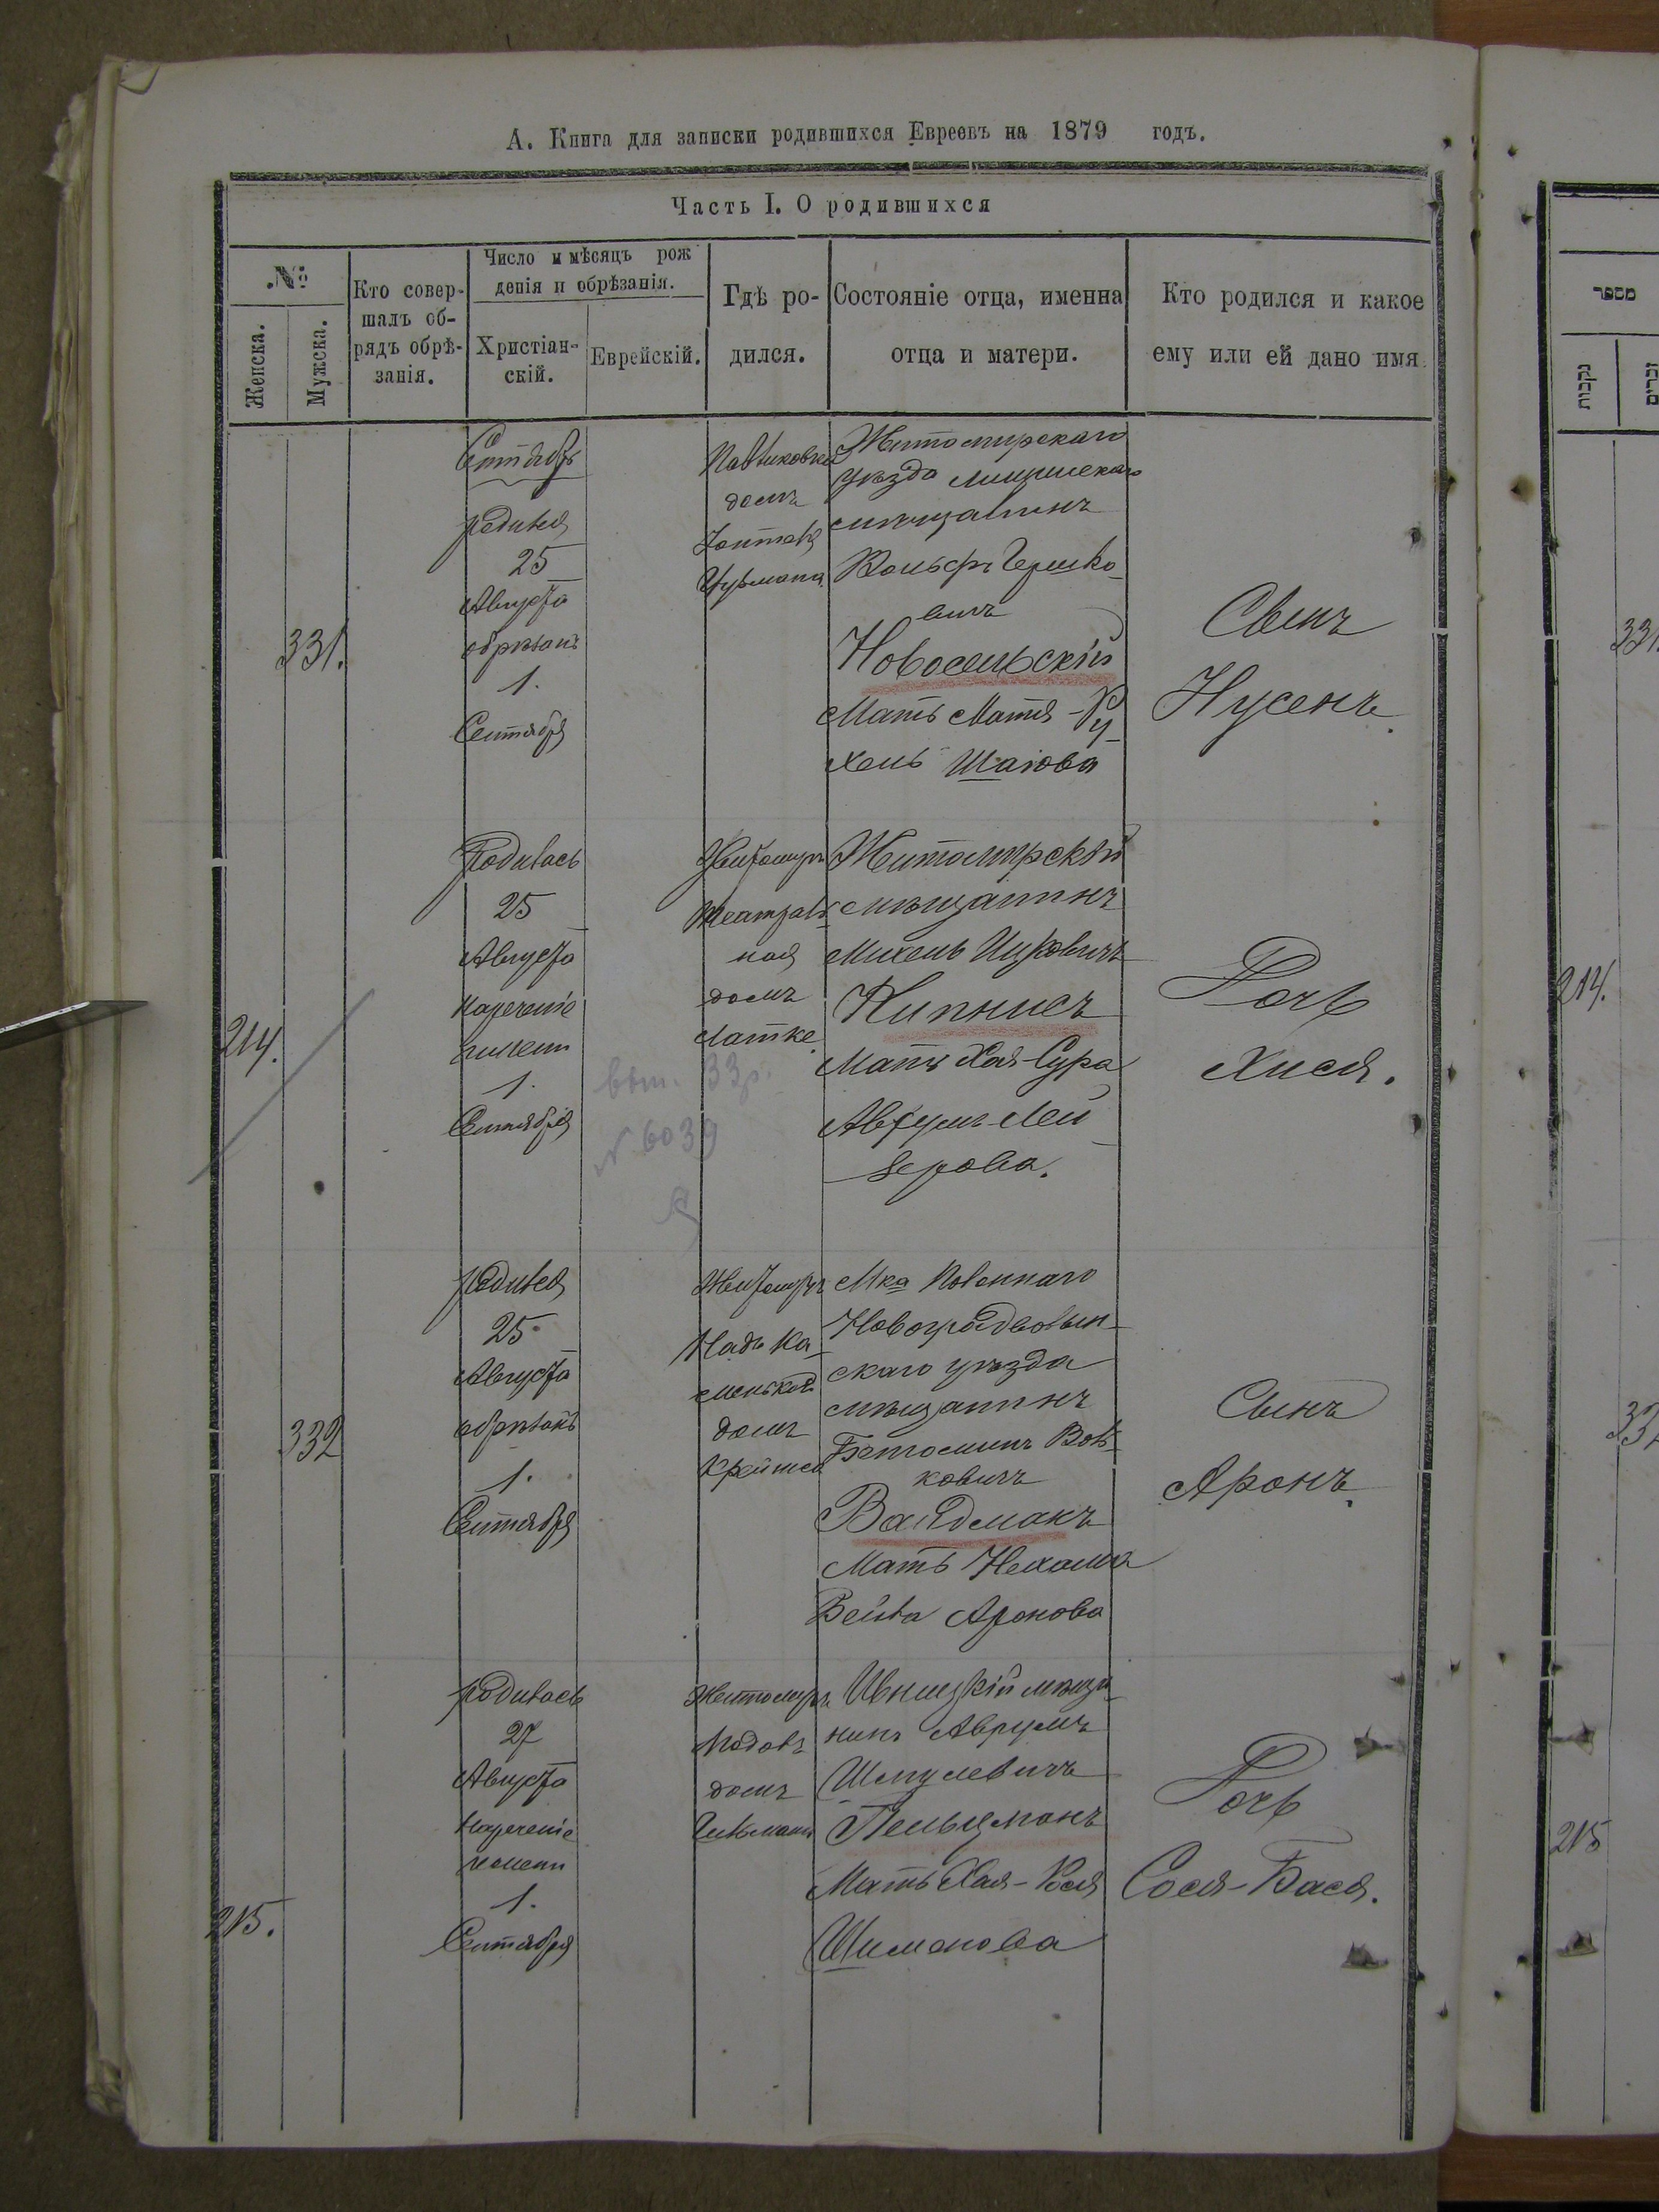 А. Книга для записки родившихся Евреевъ на 1879 годъ.
Часть I. О родившихся
№
Женска.
Мужска.
Кто совер-
шалъ об-
рядъ обрѣ-
занія.
Число и мѣсяцъ рож
денія и обрѣзанія.
Христіан-
скій.
Еврейскій.
Гдѣ ро-
дился.
Состояніе отца, именна
отца и матери.
Кто родился и какое
ему или ей дано имя
331.
Сентябрь
родился
25
Августа
обрѣзанъ
1.
Сентября
домъ
Житомирскаго
уѣзда
мѣщанинъ
Вольфъ Гершко-
вичъ
Новосельскій
Мать Матя-Ру-
хель Шаюва
Сынъ
Нусенъ.
214.
Родилась
25
Августа
Наречение
имени
1.
Сентября
Житомиръ
Театраль-
ная
домъ
Латке
Житомирскій
мѣщанинъ
Михель Ицковичъ
Кипнисъ
Мать Хая-Сура
Аврумъ-Лей-
зерова.
Дочь
Хися.
выт. 33г.
№ 6039
332
родился
25
Августа
обрѣзанъ
1.
Сентября
Житомиръ
Надъ Ка-
менькой
домъ
Мка Полоннаго
Новоградволын-
скаго уѣзда
мѣщанинъ
Беніоминъ Воль-
ковичъ
Вайдманъ
Мать Нехама
Бейла Аронова
Сынъ
Аронъ.
215.
родилась
27
Августа
Наречение
имени
1.
Сентября
Житомиръ
Подолъ
домъ
Ивницкій мѣща-
нинъ Аврумъ
Шмулевичъ
Пельцманъ
Мать Хая-Рося
Шимонова
Дочь
Сося-Бася.
מספר
נקבות
זכרים
331
214.
332
215